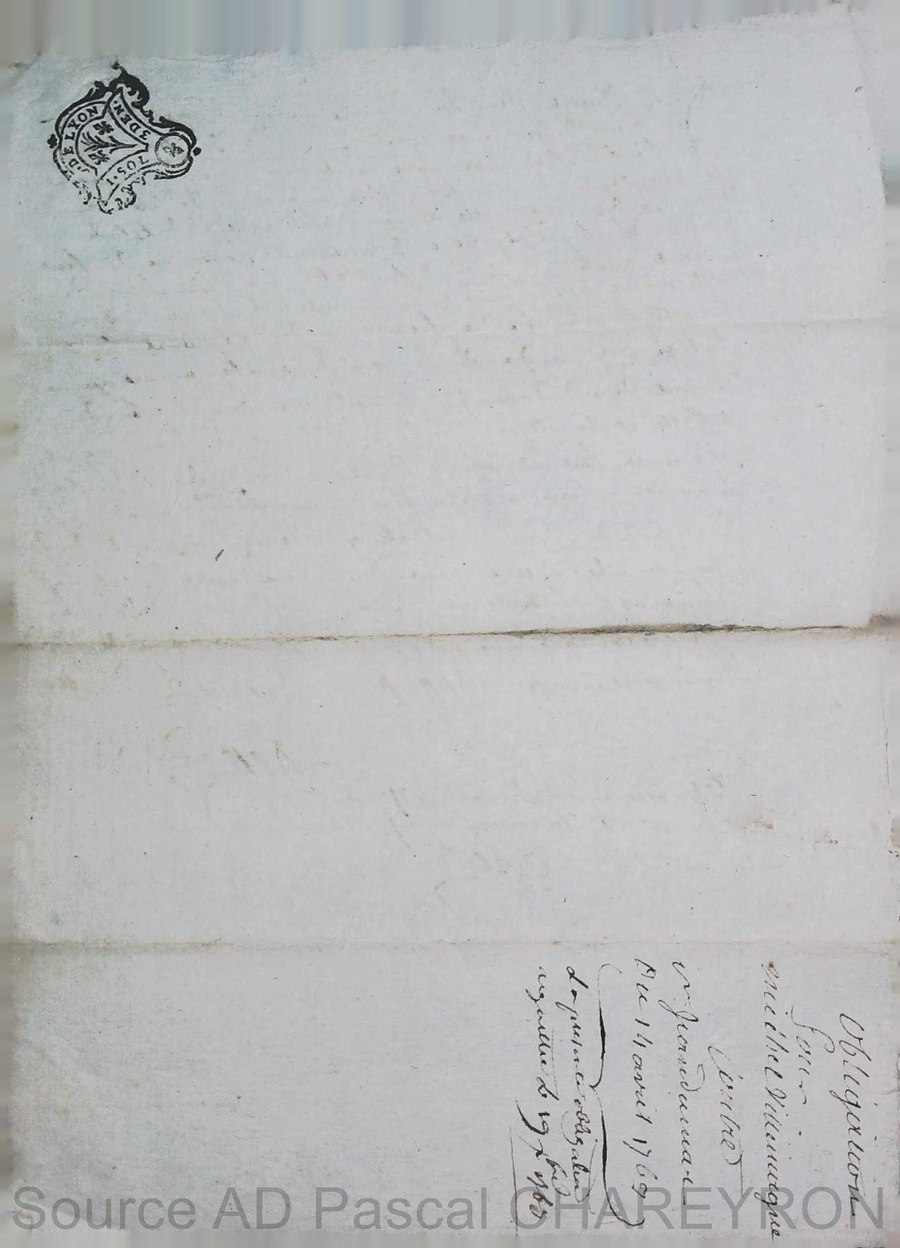 DE LYON
1 SOL
3 DEN.
Obligation
Pour
michel Villemagne
Contre
Du 14 avril 1769
La presente obligation
acquittée le 19
Source AD Pascal CHAREYRON